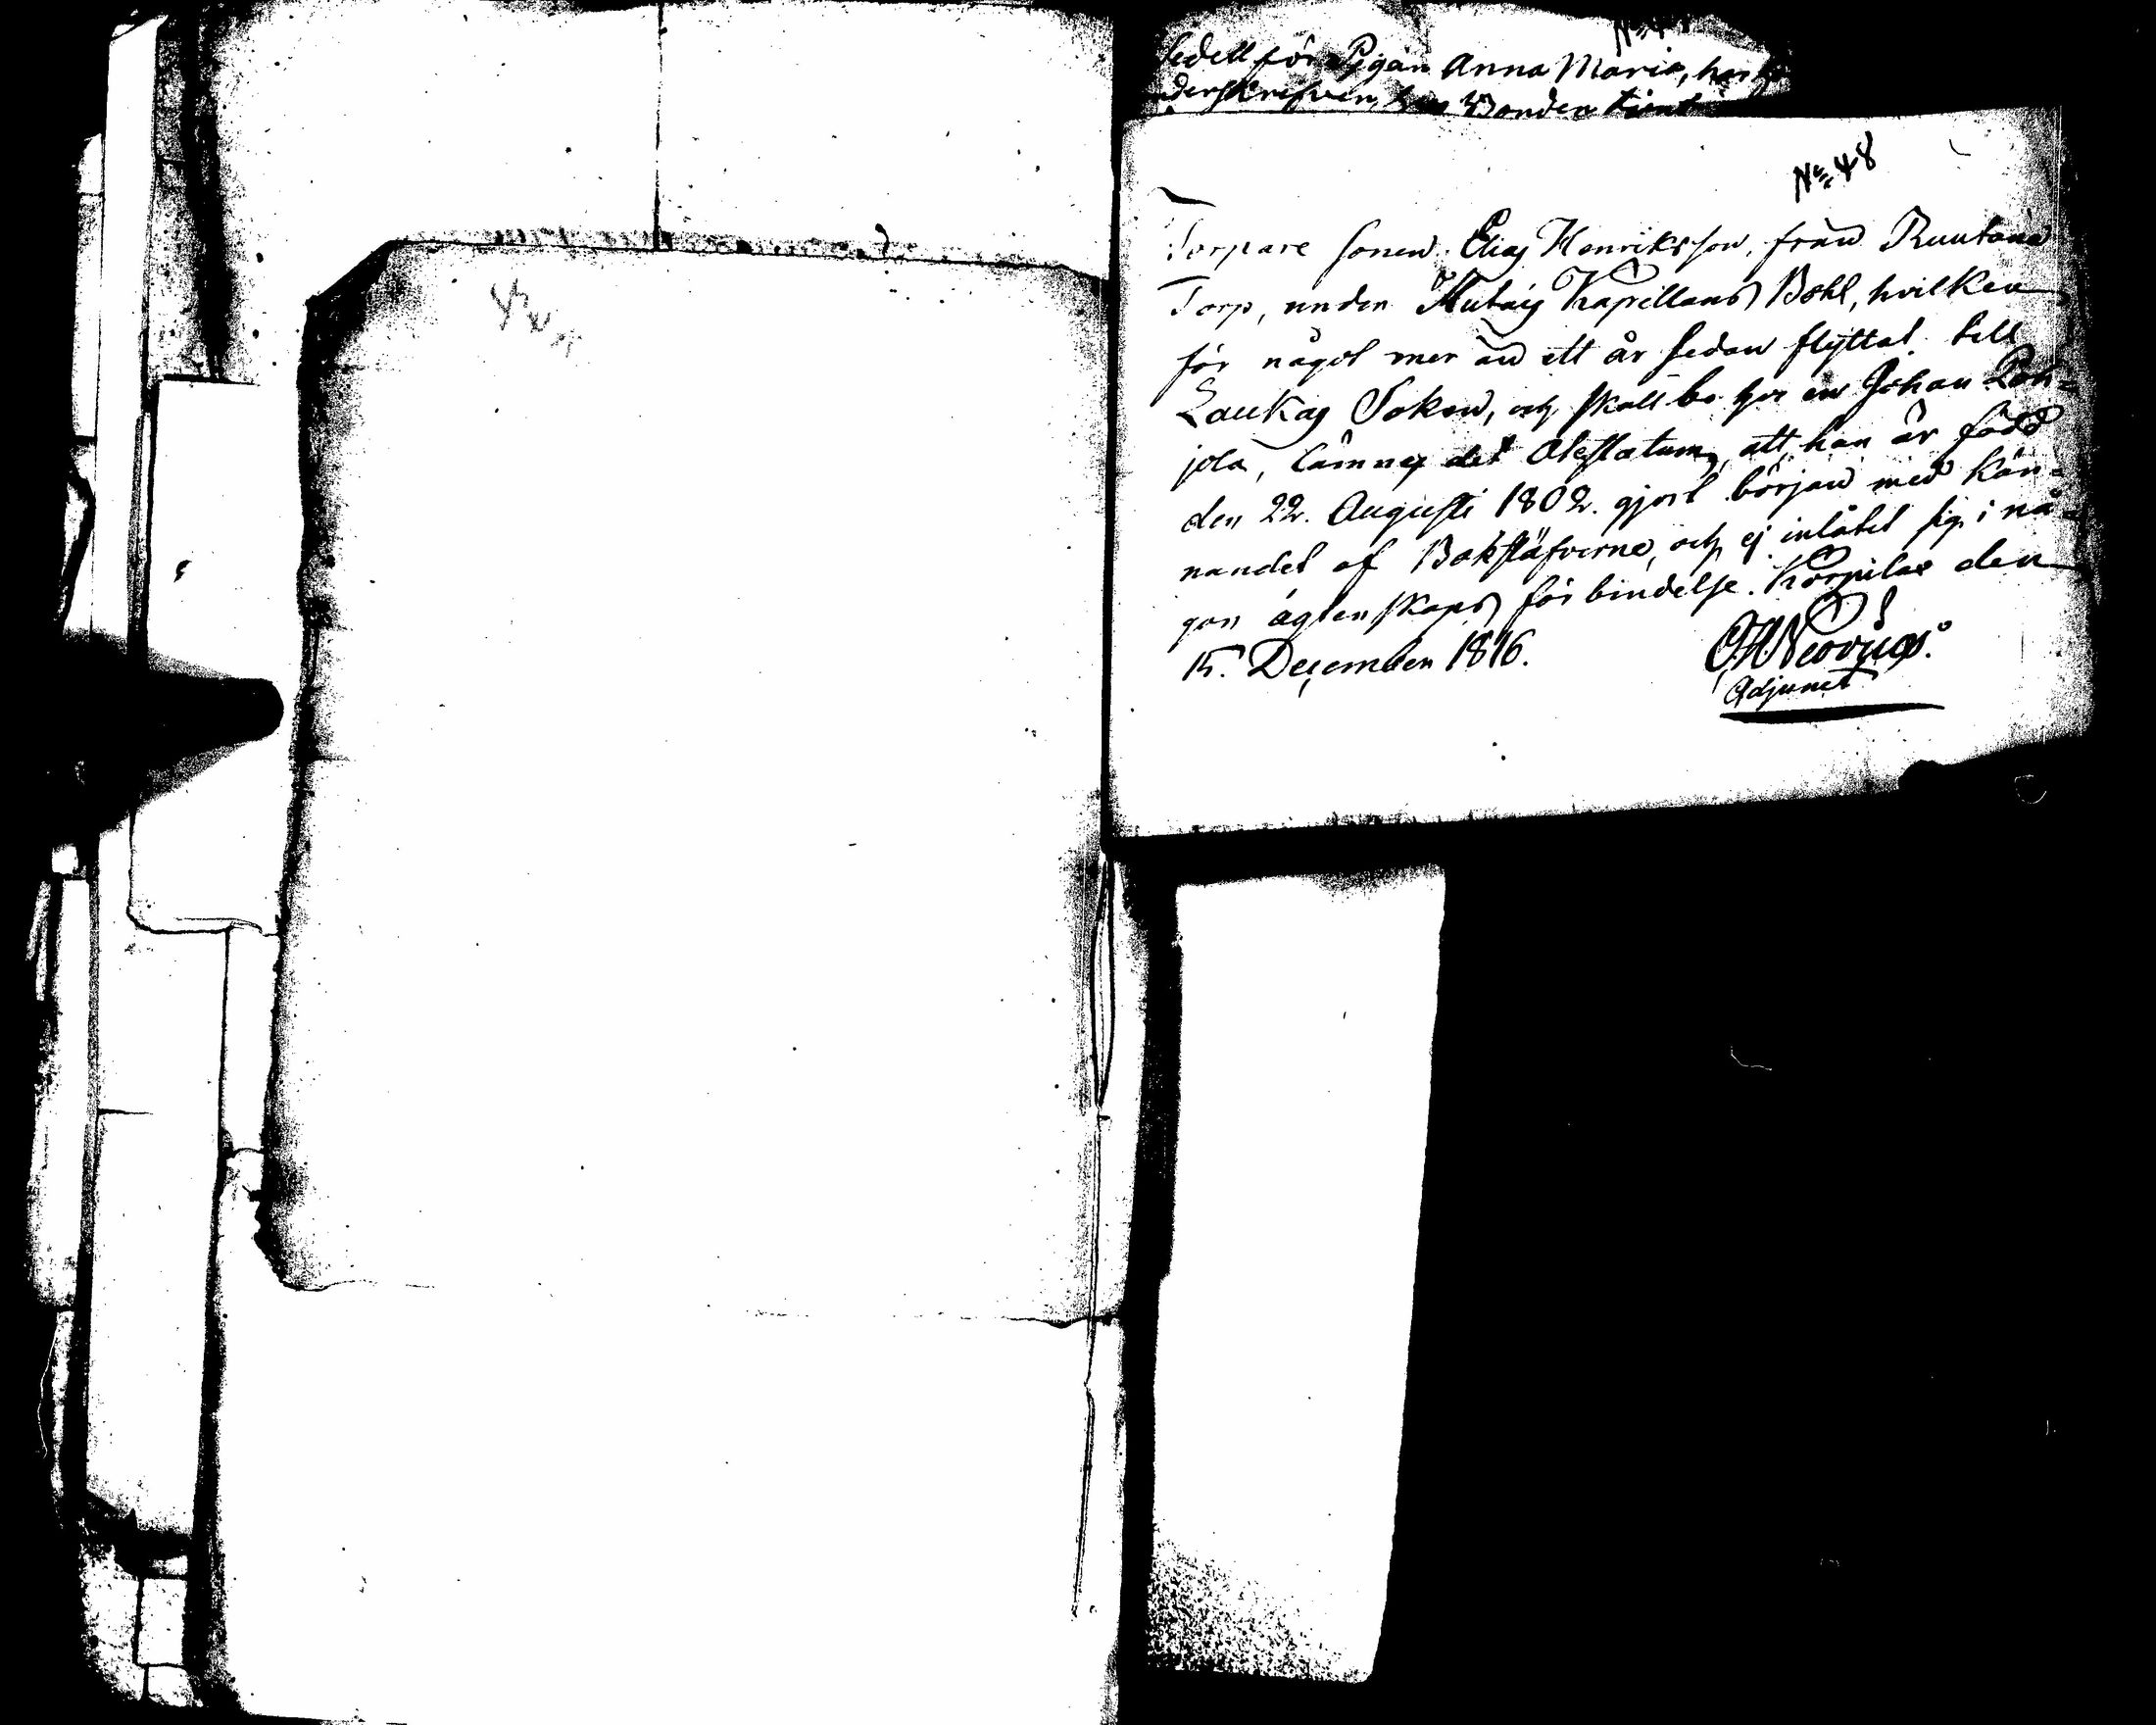 Sedell för Pigan Anna Maria, har
derskrifven, hos Bonden tient
No 48
Torpare sonen Elias Henriksson, från Ruutana
Torp, under Kapellans Bohl, hvilken
för något mer än ett år sedan flyttat till
Laukas Soken, och skall bo hos en Johan Poh=
jola, lämnas det Atestatum, att han är född
den 22. Augusti 1802. gjort början med kän=
nandet af Bokstäfverne, och ej inlåtit sig i nå=
gon ägtenskaps förbindelse. Korpilax den
15. December 1816.
Neovius.
Adjunct